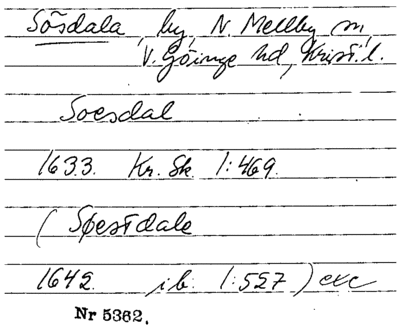 Sösdala, by, N. Mellby sn,
V. Göinge hd, Krist. l.
Soesdal
1633. Kr. Sk. 1:469.
( Søestdale
1642. ib. 1:527 ) exc
Nr 5362.